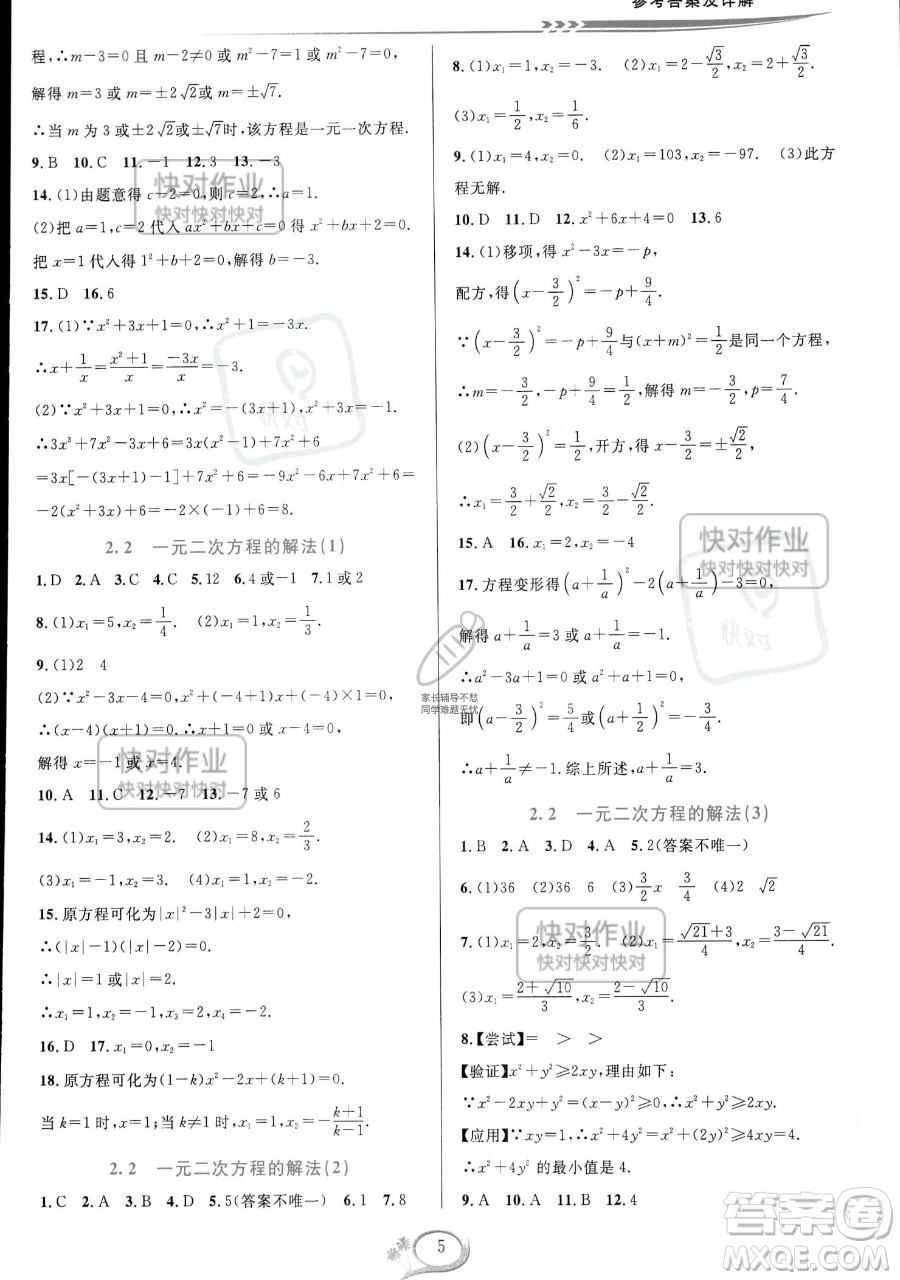 参考答案及详解
程,∴m-3=0 且 m²-8=0 或 m²-7=0 或 m²-7=1,
解得 m=3 或 m=±2√2或±√7.
∴当 m 为 3 或±2√2或±√7时,该方程是一元一次方程.
9.B 10.C 11.-1 12.3 13.-3
14.(1)由题意得 c-2=0,则 c=2,∴a=1.
(2)把 a=1,c=2 代入 ax²+bx+c=0 得 x²+bx+2=0.
把 x=1 代入得 1²+b+2=0,∴b=-3.
15.D 16.6
17.(1)∵x²+3x+1=0,∴x²+1=-3x.
∴x+1/x=(x²+1)/x=(-3x)/x=-3.
(2)∵x²+3x+1=0,∴x²=-(3x+1),
∴3x³+7x²-3x+6=3x(x²-1)+7x²+6
=3x[-(3x+1)-1]+7x²+6=-9x²-6x+7x²+6=
-2(x²+3x)+6=-2×(-1)+6=8.
2.2 一元二次方程的解法(1)
1.D 2.A 3.C 4.C 5.12 6.4或-1 7.1或2
8.(1)x₁=5,x₂=1/4. (2)x₁=1,x₂=1/3.
9.(1)2 4
(2)∵x²-3x-4=0,∴x²+(-4+1)x+(-4)×1=0,
∴(x-4)(x+1)=0,∴x+1=0 或 x-4=0,
解得 x=-1 或 x=4.
10.A 11.C 12.-7 13.-7 或 6
14.(1)x₁=3,x₂=2. (2)x₁=8,x₂=2/3.
(3)x₁=x₂=-3. (4)x₁=-1,x₂=4.
15.原方程可化为|x|²-3|x|+2=0,
∴(|x|-1)(|x|-2)=0,
∴|x|=1 或|x|=2.
∴x₁=1,x₂=-1,x₃=2,x₄=-2.
16.D 17.x₁=0,x₂=-1
18.原方程可化为(1-k)x²-2kx-(k+1)=0.
当 k=1 时,x=-1;当 k≠1 时,x₁=-1,x₂=-(k+1)/(k-1).
2.2 一元二次方程的解法(2)
1.C 2.A 3.B 4.D 5.5(答案不唯一) 6.1 7.8
8.(1)x₁=1,x₂=-3. (2)x₁=2-√3/2,x₂=2+√3/2.
(3)x₁=1/2,x₂=1/6.
9.(1)x₁=4,x₂=0. (2)x₁=103,x₂=-97. (3)此方
程无解.
10.D 11.D 12.x²+6x+4=0 13.6
14.(1)移项,得 x²-3x=-p,
配方,得(x-3/2)²=-p+9/4.
∵(x-3/2)²=-p+9/4与(x+m)²=1/2是同一个方程,
∴m=-3/2,-p+9/4=1/2,解得 m=-3/2,p=7/4.
(2)(x-3/2)²=1/2,开方,得 x-3/2=±√2/2,
∴x₁=3/2+√2/2,x₂=3/2-√2/2.
15.A 16.x₁=0,x₂=-4
17.方程变形得(a+1/a)²-2(a+1/a)-3=0,
解得 a+1/a=3 或 a+1/a=-1.
∴a²-3a+1=0 或 a²+a+1=0,
即(a-3/2)²=5/4或(a+1/2)²=-3/4.
∴a+1/a≠-1.综上所述,a+1/a=3.
2.2 一元二次方程的解法(3)
1.B 2.A 3.D 4.A 5.2(答案不唯一)
6.(1)36 (2)36 6 (3)3/2x 3/4 (4)2 √2
7.(1)x₁=2,x₂=3/2. (2)x₁=(√21+3)/4,x₂=(3-√21)/4.
(3)x₁=(2+√10)/3,x₂=(2-√10)/3.
8.【尝试】= > >
【验证】x²+y²≥2xy,理由如下:
∵x²-2xy+y²=(x-y)²≥0,∴x²+y²≥2xy.
【应用】∵xy=1,∴x²+4y²≥2x·2y=4xy=4.
∴x²+4y²的最小值是 4.
9.A 10.A 11.D 12.4
5
快对作业
快对快对快对
快对
快对作业
快对快对快对
快对
家长辅导不愁
同学难题无忧
快对作业
快对快对快对
快对作业
快对快对快对
答案圈
MXQE.COM